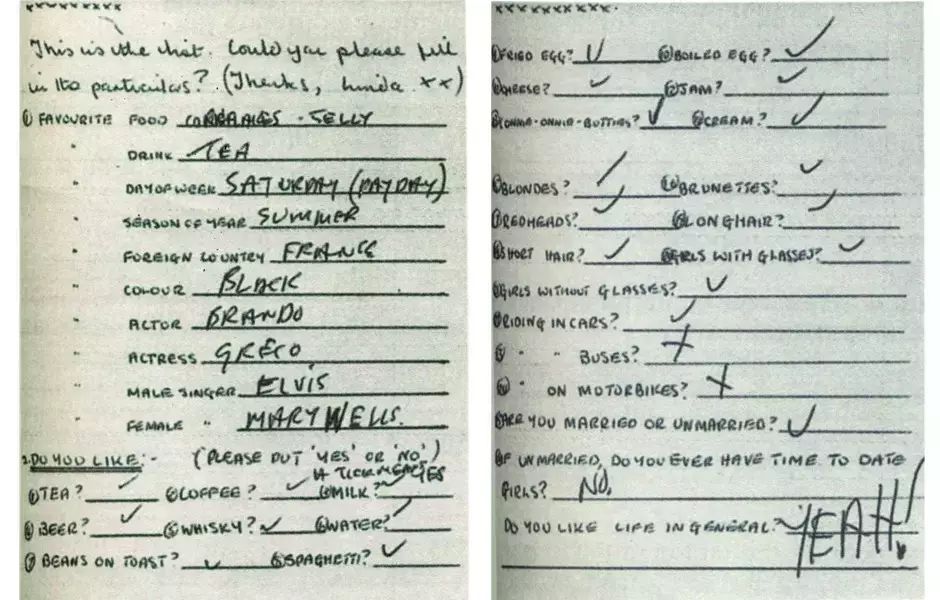 xxxxxxxxx
This is the list. Could you please fill
in its particulars? (Thanks, Linda xx)
① FAVOURITE FOOD CORNFLAKES - JELLY
" DRINK TEA
" DAY OF WEEK SATURDAY (PAYDAY)
" SEASON OF YEAR SUMMER
" FOREIGN COUNTRY FRANCE
" COLOUR BLACK
" ACTOR BRANDO
" ACTRESS GRECO
" MALE SINGER ELVIS
" FEMALE " MARY WELLS.
2. DO YOU LIKE:- (PLEASE PUT 'YES' OR 'NO'.)
A TICK MEANS YES
① TEA? ✓ ② COFFEE? ✓ ③ MILK? ✓
④ BEER? ✓ ⑤ WHISKY? ✓ ⑥ WATER? ✓
⑦ BEANS ON TOAST? ✓ ⑧ SPAGHETTI? ✓
xxxxxxxxx.
FRIED EGG? ✓ BOILED EGG? ✓
CHEESE? ✓ JAM? ✓
-ONNIE-BUTTIES? ✓ CREAM? ✓
BLONDES? ✓ BRUNETTES? ✓
REDHEADS? ✓ LONG HAIR? ✓
SHORT HAIR? ✓ GIRLS WITH GLASSES? ✓
GIRLS WITHOUT GLASSES? ✓
RIDING IN CARS? ✓
" " BUSES? X
" ON MOTORBIKES? X
ARE YOU MARRIED OR UNMARRIED? ✓
IF UNMARRIED, DO YOU EVER HAVE TIME TO DATE
GIRLS? NO.
DO YOU LIKE LIFE IN GENERAL? YEAH!